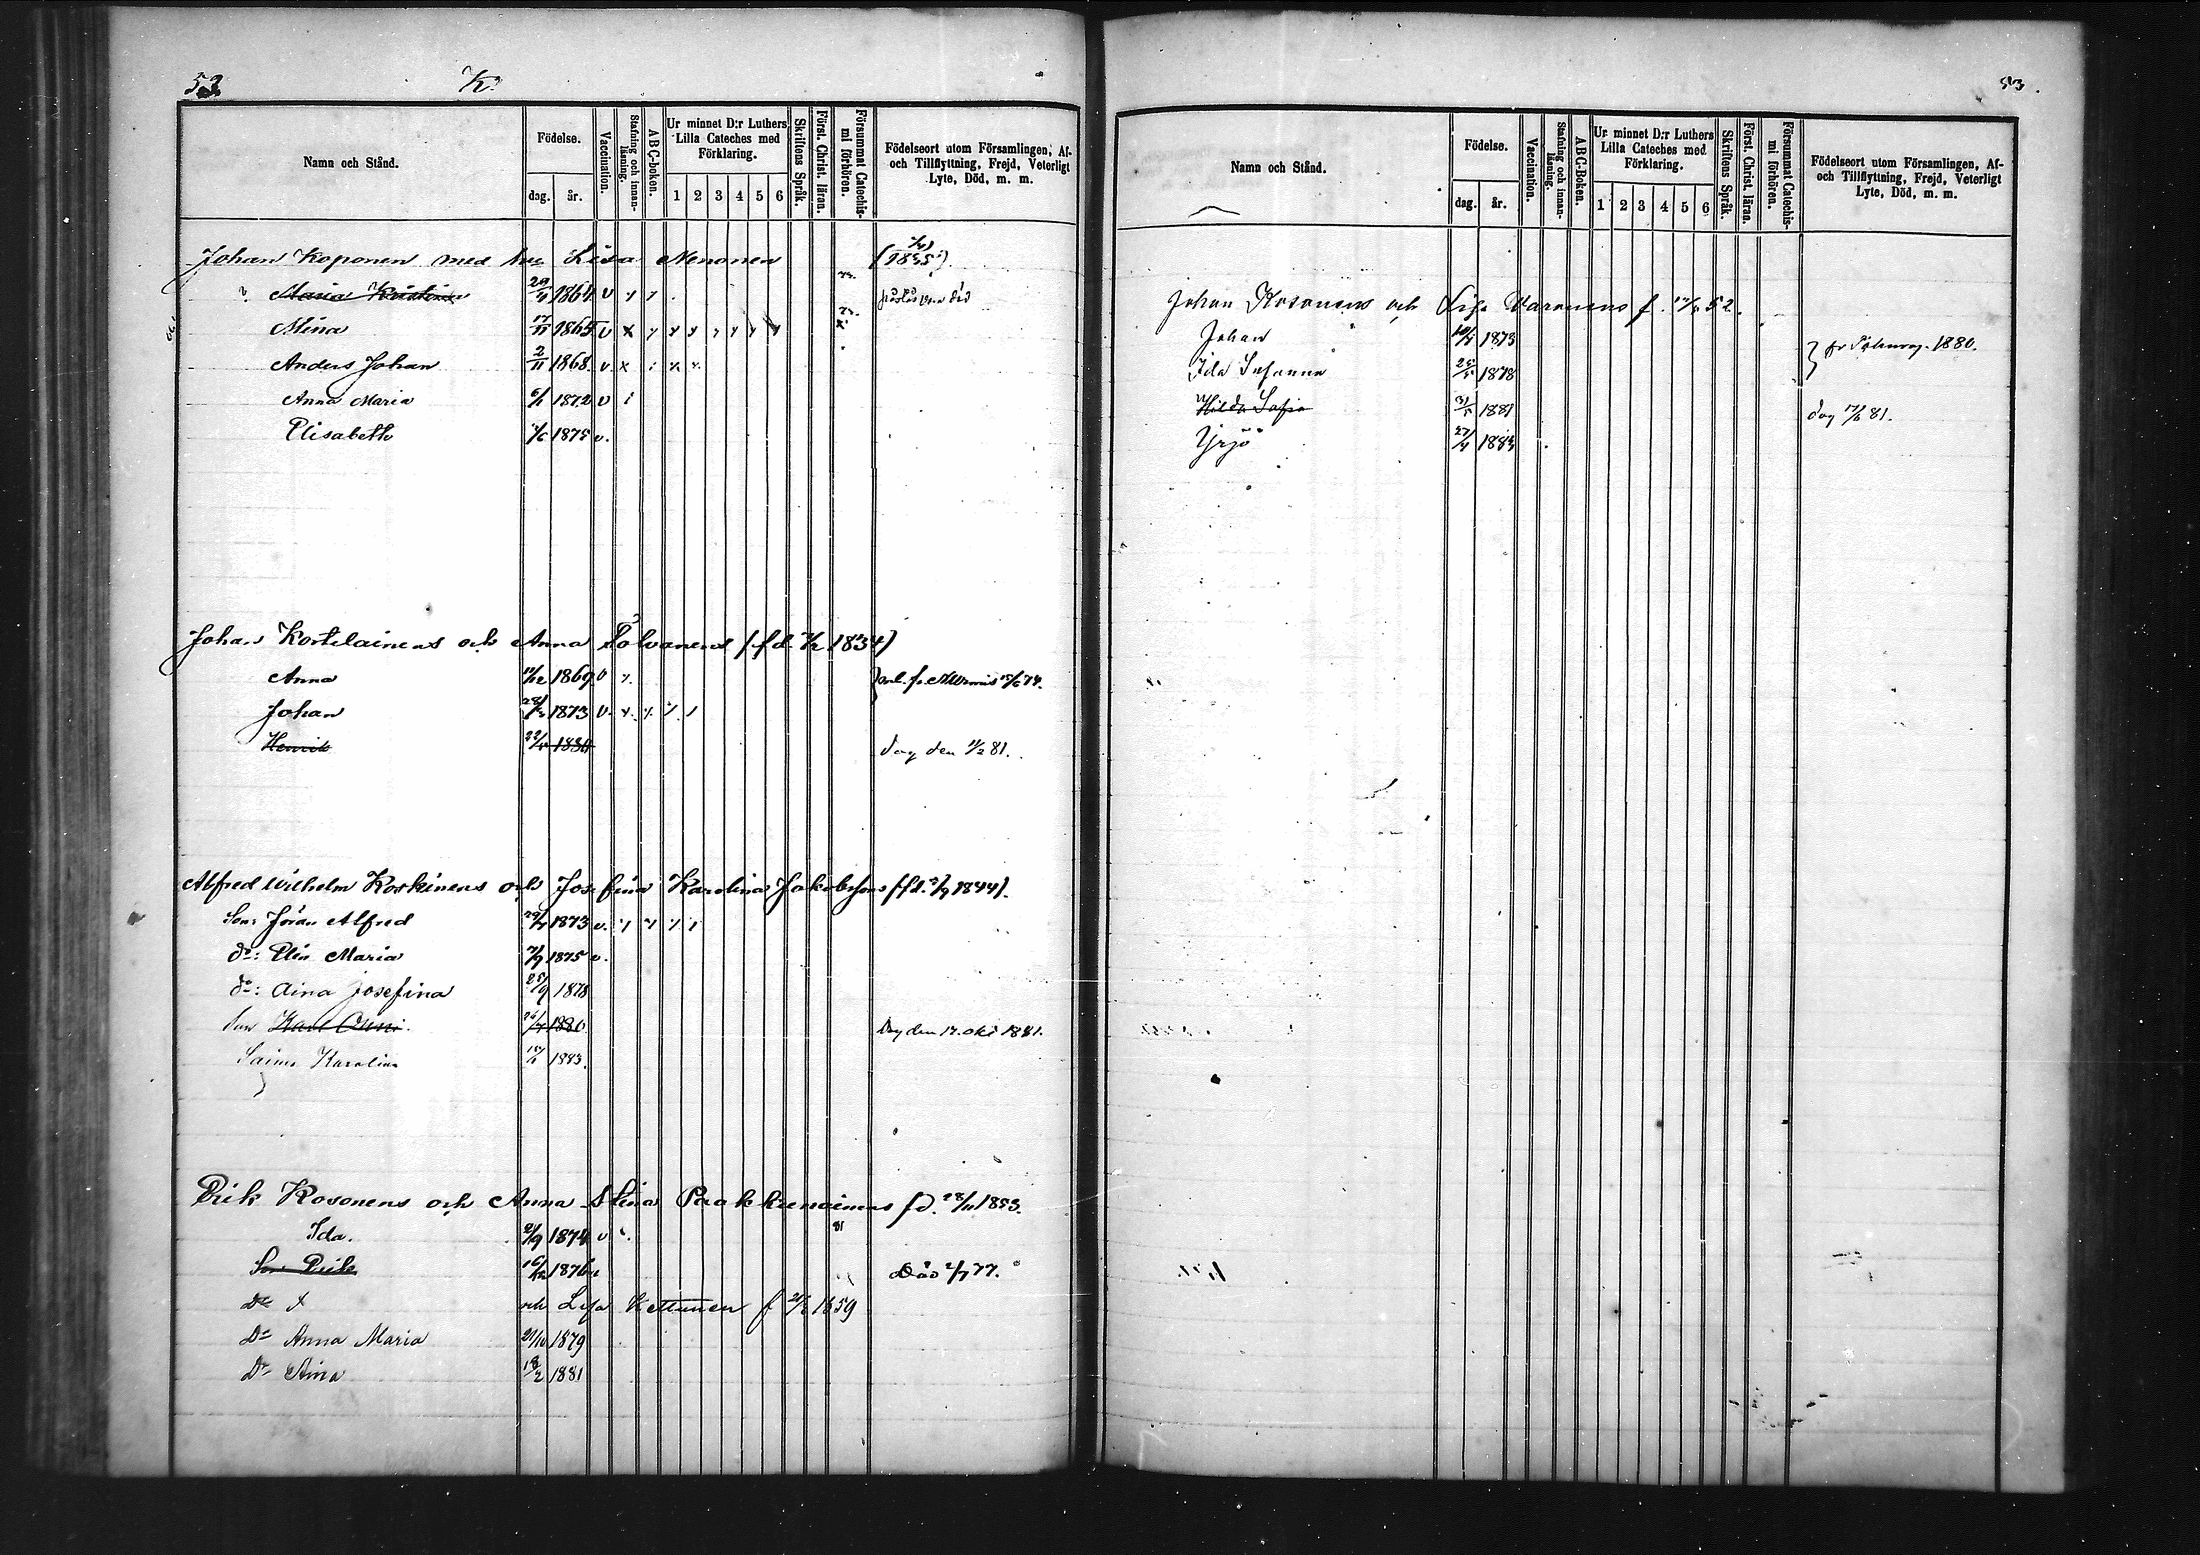 53
K.
Namn och Stånd.
Födelse.
dag.
år.
Vaccination.
Stafning och innan-läsning.
ABC-boken.
Ur minnet D:r Luthers Lilla Cateches med Förklaring.
1 2 3 4 5 6
Skriftens Språk.
Först. Christ. läran.
Försummat Catechis-mi förhören.
Födelseort utom Församlingen, Af-och Tillflyttning, Frejd, Veterligt Lyte, Död, m. m.
Johan Koponen med hu Lisa Nenonen
Maria Kristina 29/4 1864 v
Mina 1865 v x
Anders Johan 2/11 1868. v x
Anna Maria 6/1 1872 v
Elisabeth 1875 v.
Johan Kortelainens och Anna Tolvanens (fd. 1834)
Anna 1869 v
Johan 1873 v.
Henrik 22/5 1880 dog den 1/2 81.
Alfred Wilhelm Koskinens och Josefina Karolina Jakobssons (fd. 1844).
Son: Jöran Alfred 1873 v.
do: Elin Maria 7/9 1875 v.
do: Aina Josefina 25/9 1878
Son Karl Onni 1880. Dog den 17. okt 1881.
Saima Karolina 1883.
Erik Kosonens och Anna Stina Paakkunainens fd. 28/11 1853.
Ida. 21/9 1874 v
Son Erik 16/12 1876 Död 2/7 77.
och Lisa Kettunen f 1859
Do Anna Maria 21/10 1879
Do Aina 18/2 1881
53.
Namn och Stånd.
Födelse.
dag.
år.
Vaccination.
Stafning och innan-läsning.
ABC-Boken.
Ur minnet D:r Luthers Lilla Cateches med Förklaring.
1 2 3 4 5 6
Skriftens Språk.
Först. Christ. läran.
Försummat Catechis-mi förhören.
Födelseort utom Församlingen, Af-och Tillflyttning, Frejd, Veterligt Lyte, Död, m. m.
Johan Kosonens och Lisa Varonens f. 52.
Johan 1873
Ida Susanna 25/5 1878
1880.
Hilda Sofia 31/5 1881 dog 17/6 81.
Yrjö 27/4 1883